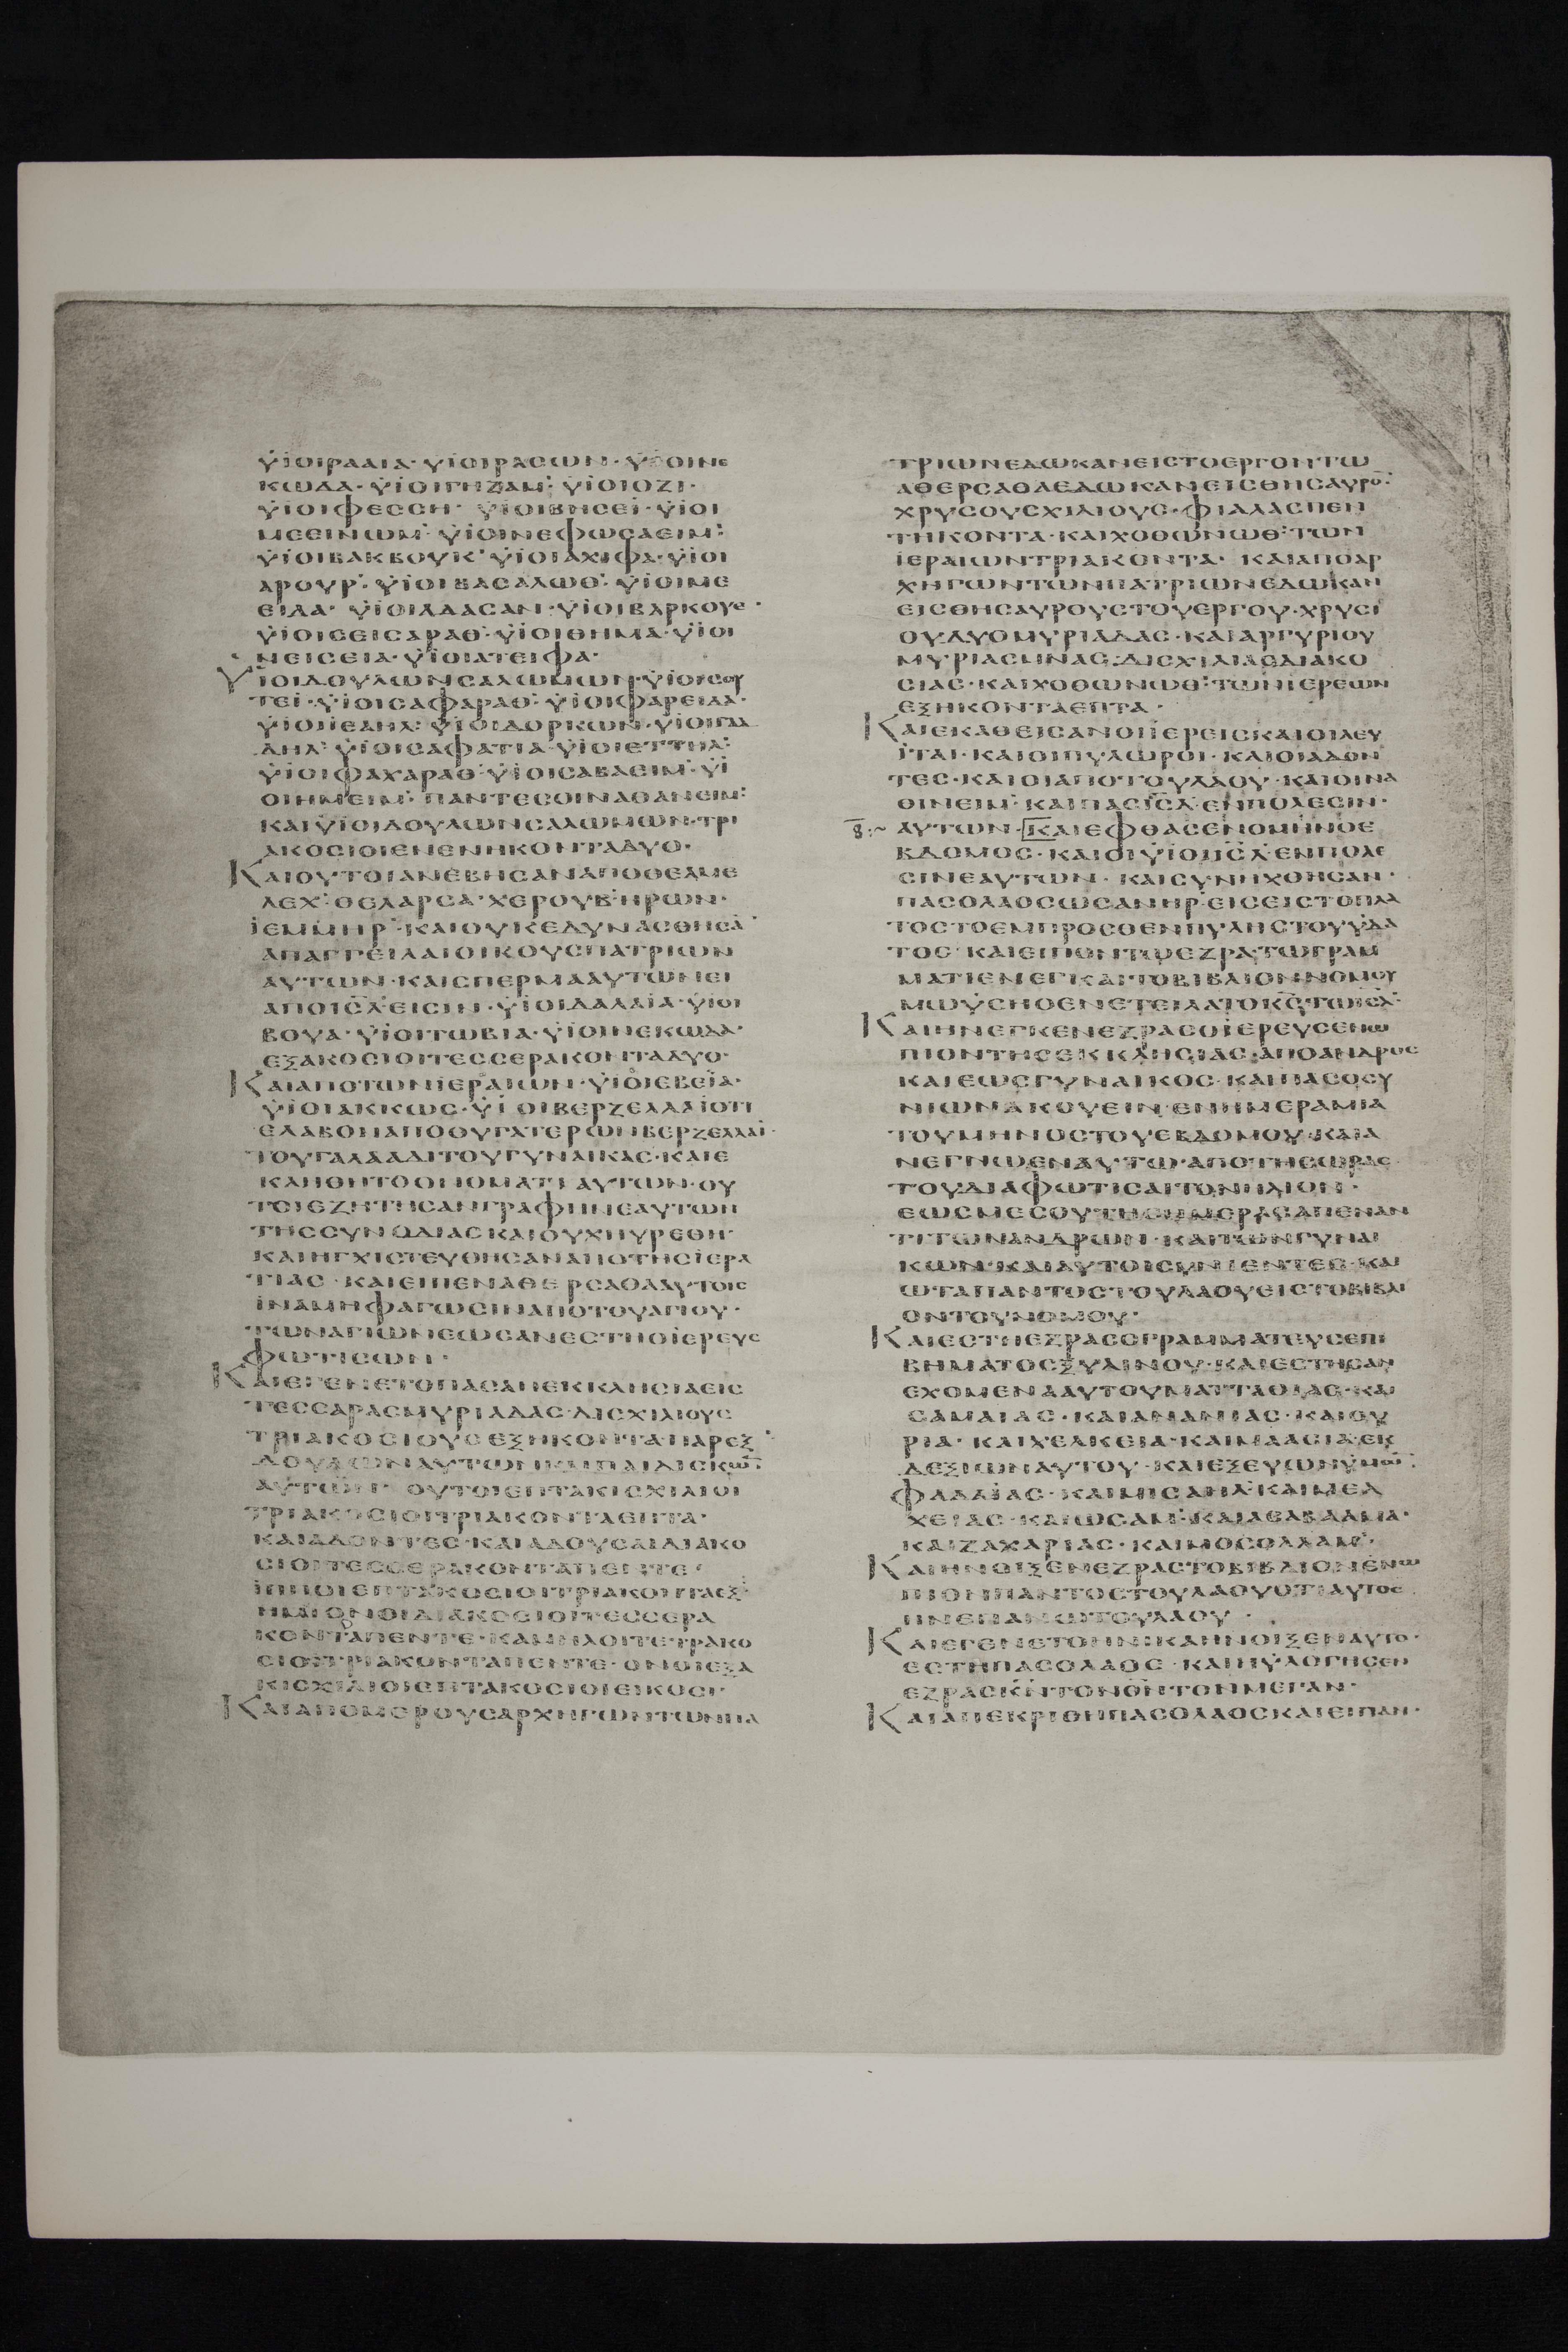 ϋϊοιραλια·ϋϊοιρασων·ϋϊοινε
κωδα·ϋϊοιγηζαμ·ϋϊοιοζι·
ϋϊοιφεσση·ϋϊοιβησει·ϋϊοι
μσεινωμ·ϋϊοινεφωσαειμ:
ϋϊοιβακβουκ·ϋϊοιαχιφα·ϋϊοι
αρουρ·ϋϊοιβασαλωθ·ϋϊοιμε
ειδα·ϋϊοιαδασαν·ϋϊοιβαρκουε·
ϋϊοισεισαραθ·ϋϊοιθημα·ϋϊοι
νεισεια·ϋϊοιατειφα·
Υϊοιδουλωνσαλωμων·ϋϊοισου
τεϊ·ϋϊοισαφαραθ·ϋϊοιφαρειδα·
ϋϊοιϊεαηλ·ϋϊοιδορκων·ϋϊοιγαδ
δηλ·ϋϊοισαφατια·ϋϊοιεττηλ·
ϋϊοιφαχαραθ·ϋϊοισαβαειμ·ϋϊ
οιημειμ·παντεσοιναθανειμ:
καιϋϊοιδουλωνσαλωμων·τρι
ακοσιοιενενηκονταδυο·
Καιουτοιανεβησαναποθελμε
λεχ·θελαρσα·χερουβ·ηρων·
ϊεμμηρ·καιουκεδυνασθησα
απαγγειλαιοικουσπατριων
αυτων·καισπερμααυτωνει
αποισλεισιν·ϋϊοιδαλαϊα·ϋϊοι
βουα·ϋϊοιτωβια·ϋϊοινεκωδα·
εξακοσιοιτεσσερακονταδυο·
Καιαποτωνϊεραιων·ϋϊοιεβεϊα·
ϋϊοιακκως·ϋϊοιβερζελλαϊοτι
ελαβοναποθυγατερωνβερζελλαϊ·
τουγαλααδιτουγυναικας·καιε
κληθητοονοματιαυτων·ου
τοιεζητησανγραφηνεαυτων
τησσυνωδιασκαιουχηυρεθη·
καιηγχιστευθησαναποτησϊερα
τιας·καιειπεναθερσαθααυτοις
ϊναμηφαγωσιναποτουαγιου·
τωναγιωνεωσανεστηοϊερευς
φωτισων·
Καιεγενετοπασαηεκκλησιαεις
τεσσαρασμυριαδας·δισχιλιους
τριακοσιουσεξηκονταπαρεξ·
δουλωναυτωνκαιπαιδισκω·
αυτων·ουτοιεπτακισχιλιοι
τριακοσιοιτριακονταεπτα·
καιαδοντες·καιαδουσαιδιακο
σιοιτεσσερακονταπεντε·
ϊπποιεπτακοσιοιτριακονταεξ·
ημιονοιδιακοσιοιτεσσερα
κονταπεντε·καμηλοιτετρακο
σιοιτριακονταπεντε·ονοιεξα
κισχιλιοιεπτακοσιοιεικοσι·
Καιαπομερουσαρχηγωντωνπα
τριωνεδωκανειστοεργοντω
αθερσαθαεδωκανεισθησαυρο·
χρυσουσχιλιους·φιαλασπεν
τηκοντα·καιχοθωνωθ·των
ϊεραιωντριακοντα·καιαποαρ
χηγωντωνπατριωνεδωκαν
εισθησαυρουστουεργου·χρυσι
ουδυομυριαδας·καιαργυριου
μυριασμνας·δισχιλιασδιακο
σιας·καιχοθωνωθ·τωνϊερεων
εξηκονταεπτα·
Καιεκαθεισανοιϊερεισκαιοιλευ
ϊται·καιοιπυλωροι·καιοιαδον
τες·καιοιαποτουλαου·καιοινα
θινειμ·καιπασισλ·ενπολεσιν·
αυτων·καιεφθασενομηνοε
βδομος·καιοιϋϊοιισλ·ενπολε
σινεαυτων·καισυνηχθησαν·
πασολαοσωσανηρ·εισεισ τοπλα
τοστοεμπροσθενπυληστουϋδα
τος·καιειπωντωεζρατωγραμ
ματιενεγκαιτοβιβλιοννομου
μωϋσηοενετειλατοκστωισλ·
Καιηνεγκενεζρασοϊερευσενω
πιοντησεκκλησιας·αποανδρος
καιεωσγυναικος·καιπασοσυ
νιωνακουειν·ενημεραμια
τουμηνοστουεβδομου·καια
νεγνωεναυτω·αποτησωρας
τουδιαφωτισαιτονηλιον·
εωσμεσουτησημερασαπεναν
τιτωνανδρων·καιτωνγυναι
κων·καιαυτοισυνιεντες·και
ωταπαντοστουλαουειστοβιβλι
οντουνομου·
Καιεστηεζρασογραμματευσεπι
βηματοσξυλινου·καιεστησαν
εχομενααυτουματταθιας·και
σαμαιας·καιανανιας·καιου
ρια·καιχελκεια·καιμαασια·εκ
δεξιωναυτου·καιεξευωνυμω·
φαδαϊας·καιμισαηλ·καιμελ
χειας·καιωσαμ·καιασαβααμα·
καιζαχαριας·καιμοσολλαμ·
Καιηνοιξενεζραστοβιβλιονενω
πιονπαντοστουλαουοτιαυτος
ηνεπανωτουλαου·
Καιεγενετοηνικαηνοιξεναυτο·
εστηπασολαος·καιηϋλογησεν
εζρασκντονθντονμεγαν·
Καιαπεκριθηπασολαοσκαιειπαν·